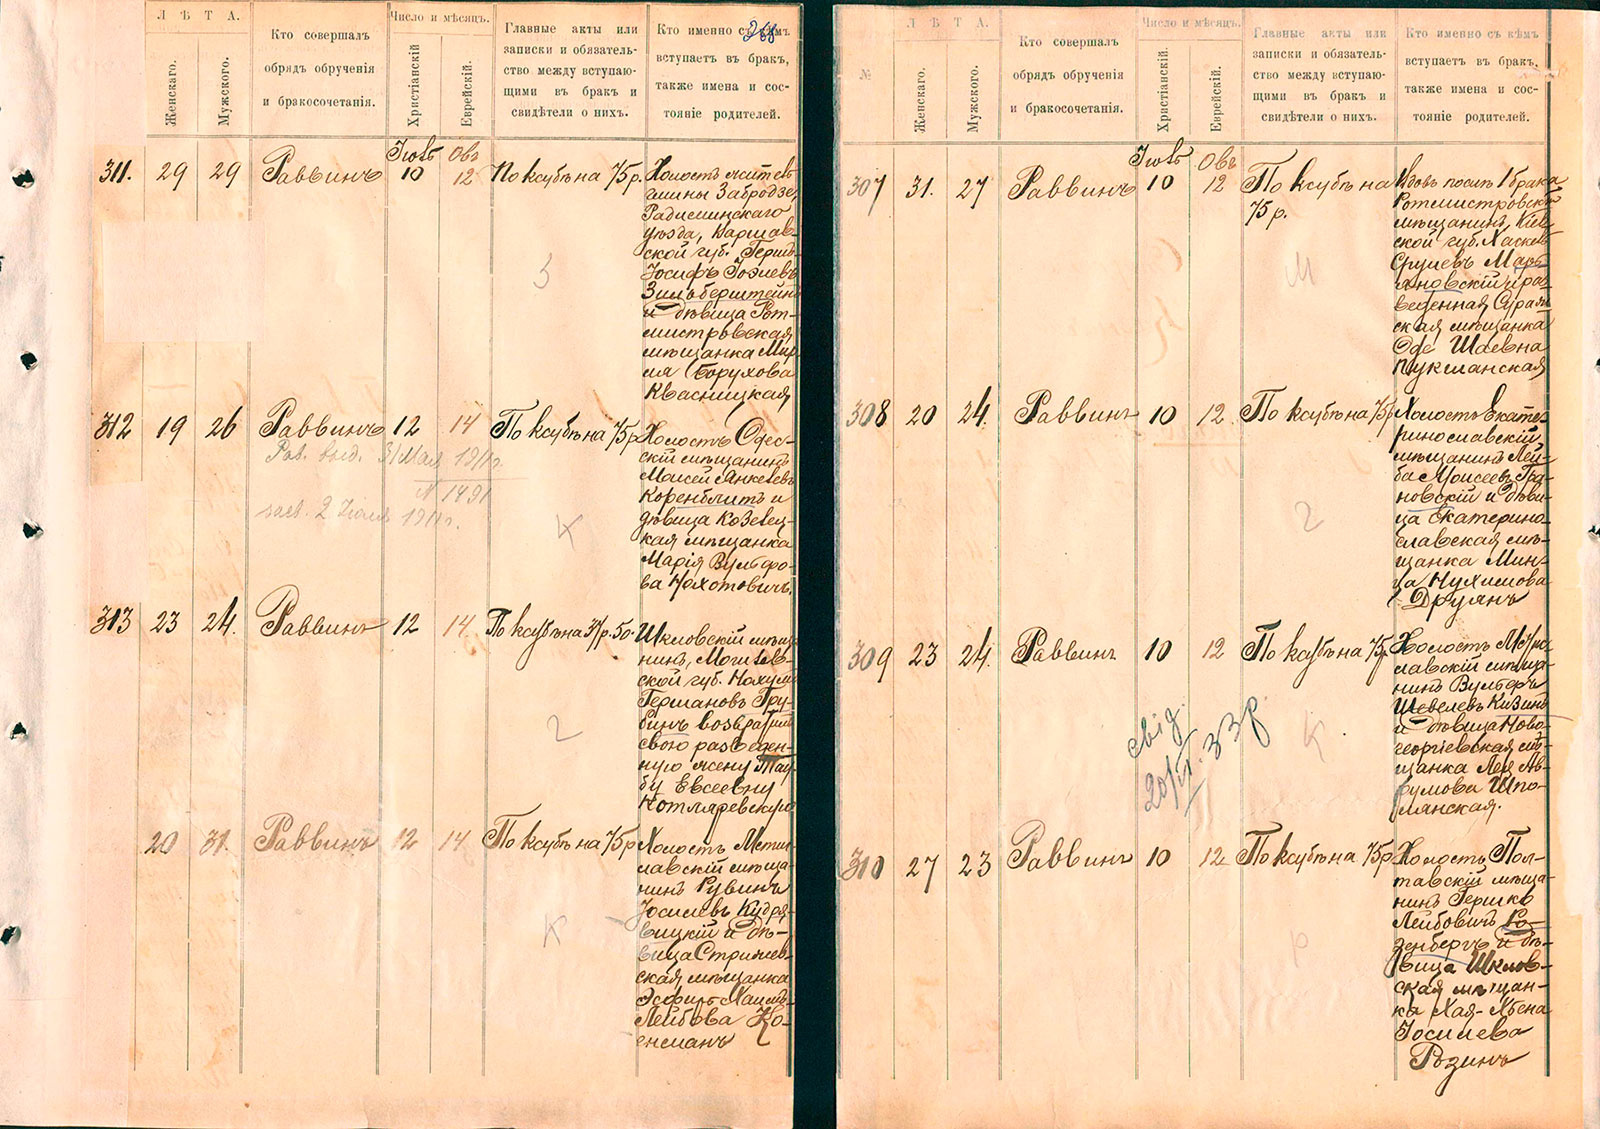 268
Л Ѣ Т А.
Женскаго.
Мужского.
Кто совершалъ
обрядъ обрученія
и бракосочетанія.
Число и мѣсяцъ.
Христіанскій
Еврейскій.
Главные акты или
записки и обязатель-
ство между вступаю-
щими въ бракъ и
свидѣтели о нихъ.
Кто именно съ кѣмъ
вступаетъ въ бракъ,
также имена и сос-
тояніе родителей.
311. 29 29 Раввинъ 10 12 По ксубѣ на 75 р.
Холостъ
гмины Забродзе,
Радиминскаго
уѣзда, Варшав-
ской губ. Гершъ
Іосифъ
Зильберштейнъ
и дѣвица Рот-
мистровская
мѣщанка Мир
ля Борухова
Квасницкая
312 19 26 Раввинъ 12 14 По ксубѣ на 75 р.
31 Мая 1911 г.
N 1491
2 Іюля 1911 г.
Холостъ Одес-
скій мѣщанинъ
Моисей Янкелевъ
Коренблитъ и
дѣвица Козелец-
кая мѣщанка
Марія Вульфо-
ва Нахотовичъ.
313 23 24. Раввинъ 12 14. По ксубѣ на 37 р. 50.
Шкловскій мѣща
нинъ, Могилев-
ской губ. Нохумъ
Германовъ Гру-
бинъ возвратилъ
свою разведен-
ную жену Тай-
бу Евсеевну
Котляревскую
20 31. Раввинъ 12 14 По ксубѣ на 75 р
Холостъ Мстис
лавскій мѣща
нинъ Рувинъ
Іосилевъ Кудря-
вицкій и дѣ-
вица Стрижев-
ская мѣщанка
Эсфирь Хаимъ-
Лейбова Ко-
енманъ
№
Л Ѣ Т А.
Женскаго.
Мужского.
Кто совершалъ
обрядъ обрученія
и бракосочетанія.
Число и мѣсяцъ.
Христіанскій
Еврейскій.
Главные акты или
записки и обязатель-
ство между вступаю-
щими въ бракъ и
свидѣтели о нихъ.
Кто именно съ кѣмъ
вступаетъ въ бракъ,
также имена и сос-
тояніе родителей.
307 31. 27 Раввинъ 10 12 По ксубѣ на
75 р.
Вдовъ послѣ 1 брака
Ротмистровскій
мѣщанинъ, Кіев
ской губ. Хаскель
Срулевъ Марь
яновскій и раз
веденная Сураж
ская мѣщанка
Оде Шаевна
Пукшанская
308 20 24. Раввинъ 10 12. По ксубѣ на 75 р
Холостъ Екате-
ринославскій
мѣщанинъ Лей-
ба Моисеевъ Гра
новскій и дѣви-
ца Екатерино-
славская мѣ-
щанка Мин-
ца Нухимова
Друянъ
309 23 24. Раввинъ 10 12 По ксубѣ на 75 р
свід.
20/IX. 33 р.
Холостъ Мстис
лавскій мѣща
нинъ Вульфъ
Шевелевъ Кизинъ
и дѣвица Ново-
георгіевская мѣ-
щанка Лея Ав-
румова Шпо-
лянская.
310 27 23 Раввинъ 10 12 По ксубѣ на 75 р
Холостъ Пол-
тавскій мѣща-
нинъ Гершко
Лейбовичъ Ро-
зенбергъ и дѣ-
вица Шклов-
ская мѣщан-
ка Хая-Хьена
Іосилева
Розинъ